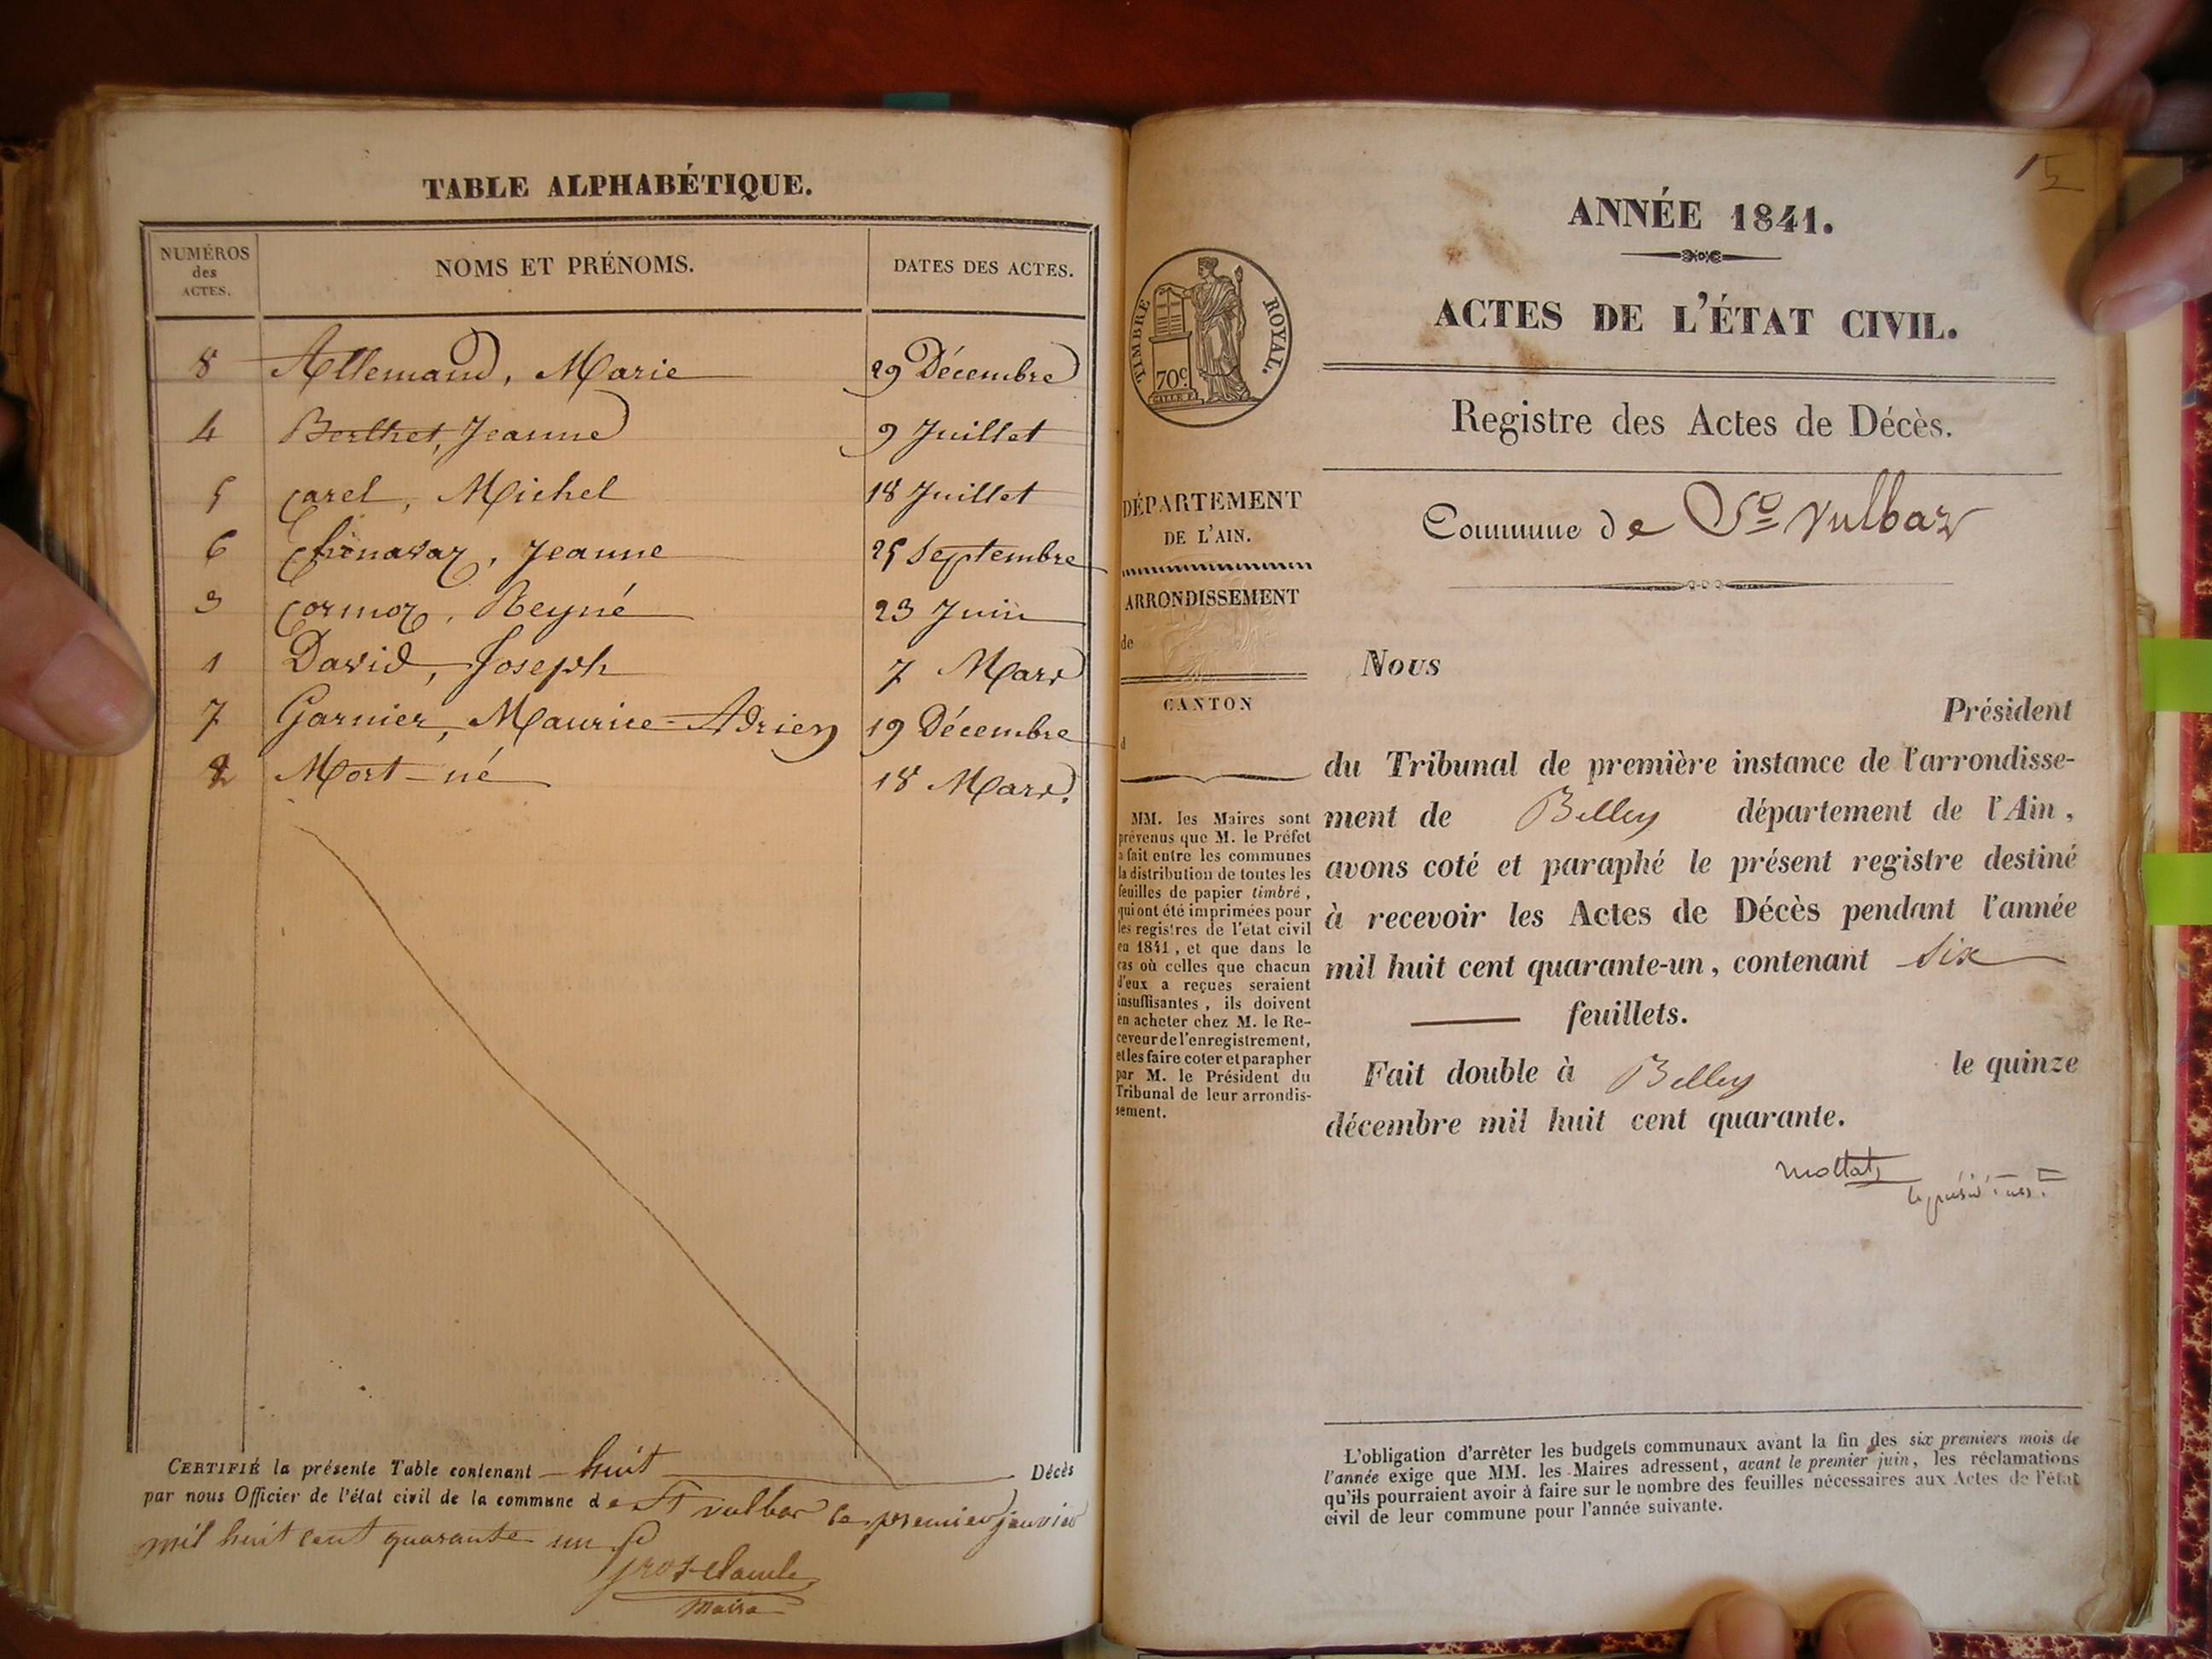 TABLE ALPHABÉTIQUE.
NUMÉROS des ACTES. NOMS ET PRÉNOMS. DATES DES ACTES.
8 Allemand, Marie 29 Décembre
4 Berthet, Jeanne 9 Juillet
5 Carel, Michel 18 Juillet
6 Chenavaz, Jeanne 25 Septembre
3 Cormoz, Reyné 23 Juin
1 David, Joseph 7 Mars
7 Garnier, Maurice-Adrien 19 Décembre
2 Mort-né 18 Mars.
CERTIFIÉ la présente Table contenant huit Décès
par nous Officier de l'état civil de la commune de St vulbas le premier janvier
mil huit cent quarante un
Grosclaude
Maire
15
ANNÉE 1841.
ACTES DE L'ÉTAT CIVIL.
Registre des Actes de Décès.
Commune de St Vulbaz
TIMBRE ROYAL.
70c.
DÉPARTEMENT
DE L'AIN.
ARRONDISSEMENT
de
CANTON
d
MM. les Maires sont
prévenus que M. le Préfet
a fait entre les communes
la distribution de toutes les
feuilles de papier timbré,
qui ont été imprimées pour
les registres de l'état civil
en 1841, et que dans le
cas où celles que chacun
d'eux a reçues seraient
insuffisantes, ils doivent
en acheter chez M. le Re-
ceveur de l'enregistrement,
et les faire coter et parapher
par M. le Président du
Tribunal de leur arrondis-
sement.
Nous
Président
du Tribunal de première instance de l'arrondisse-
ment de Belley département de l'Ain,
avons coté et paraphé le présent registre destiné
à recevoir les Actes de Décès pendant l'année
mil huit cent quarante-un, contenant six
feuillets.
Fait double à Belley le quinze
décembre mil huit cent quarante.
L'obligation d'arrêter les budgets communaux avant la fin des six premiers mois de
l'année exige que MM. les Maires adressent, avant le premier juin, les réclamations
qu'ils pourraient avoir à faire sur le nombre des feuilles nécessaires aux Actes de l'état
civil de leur commune pour l'année suivante.